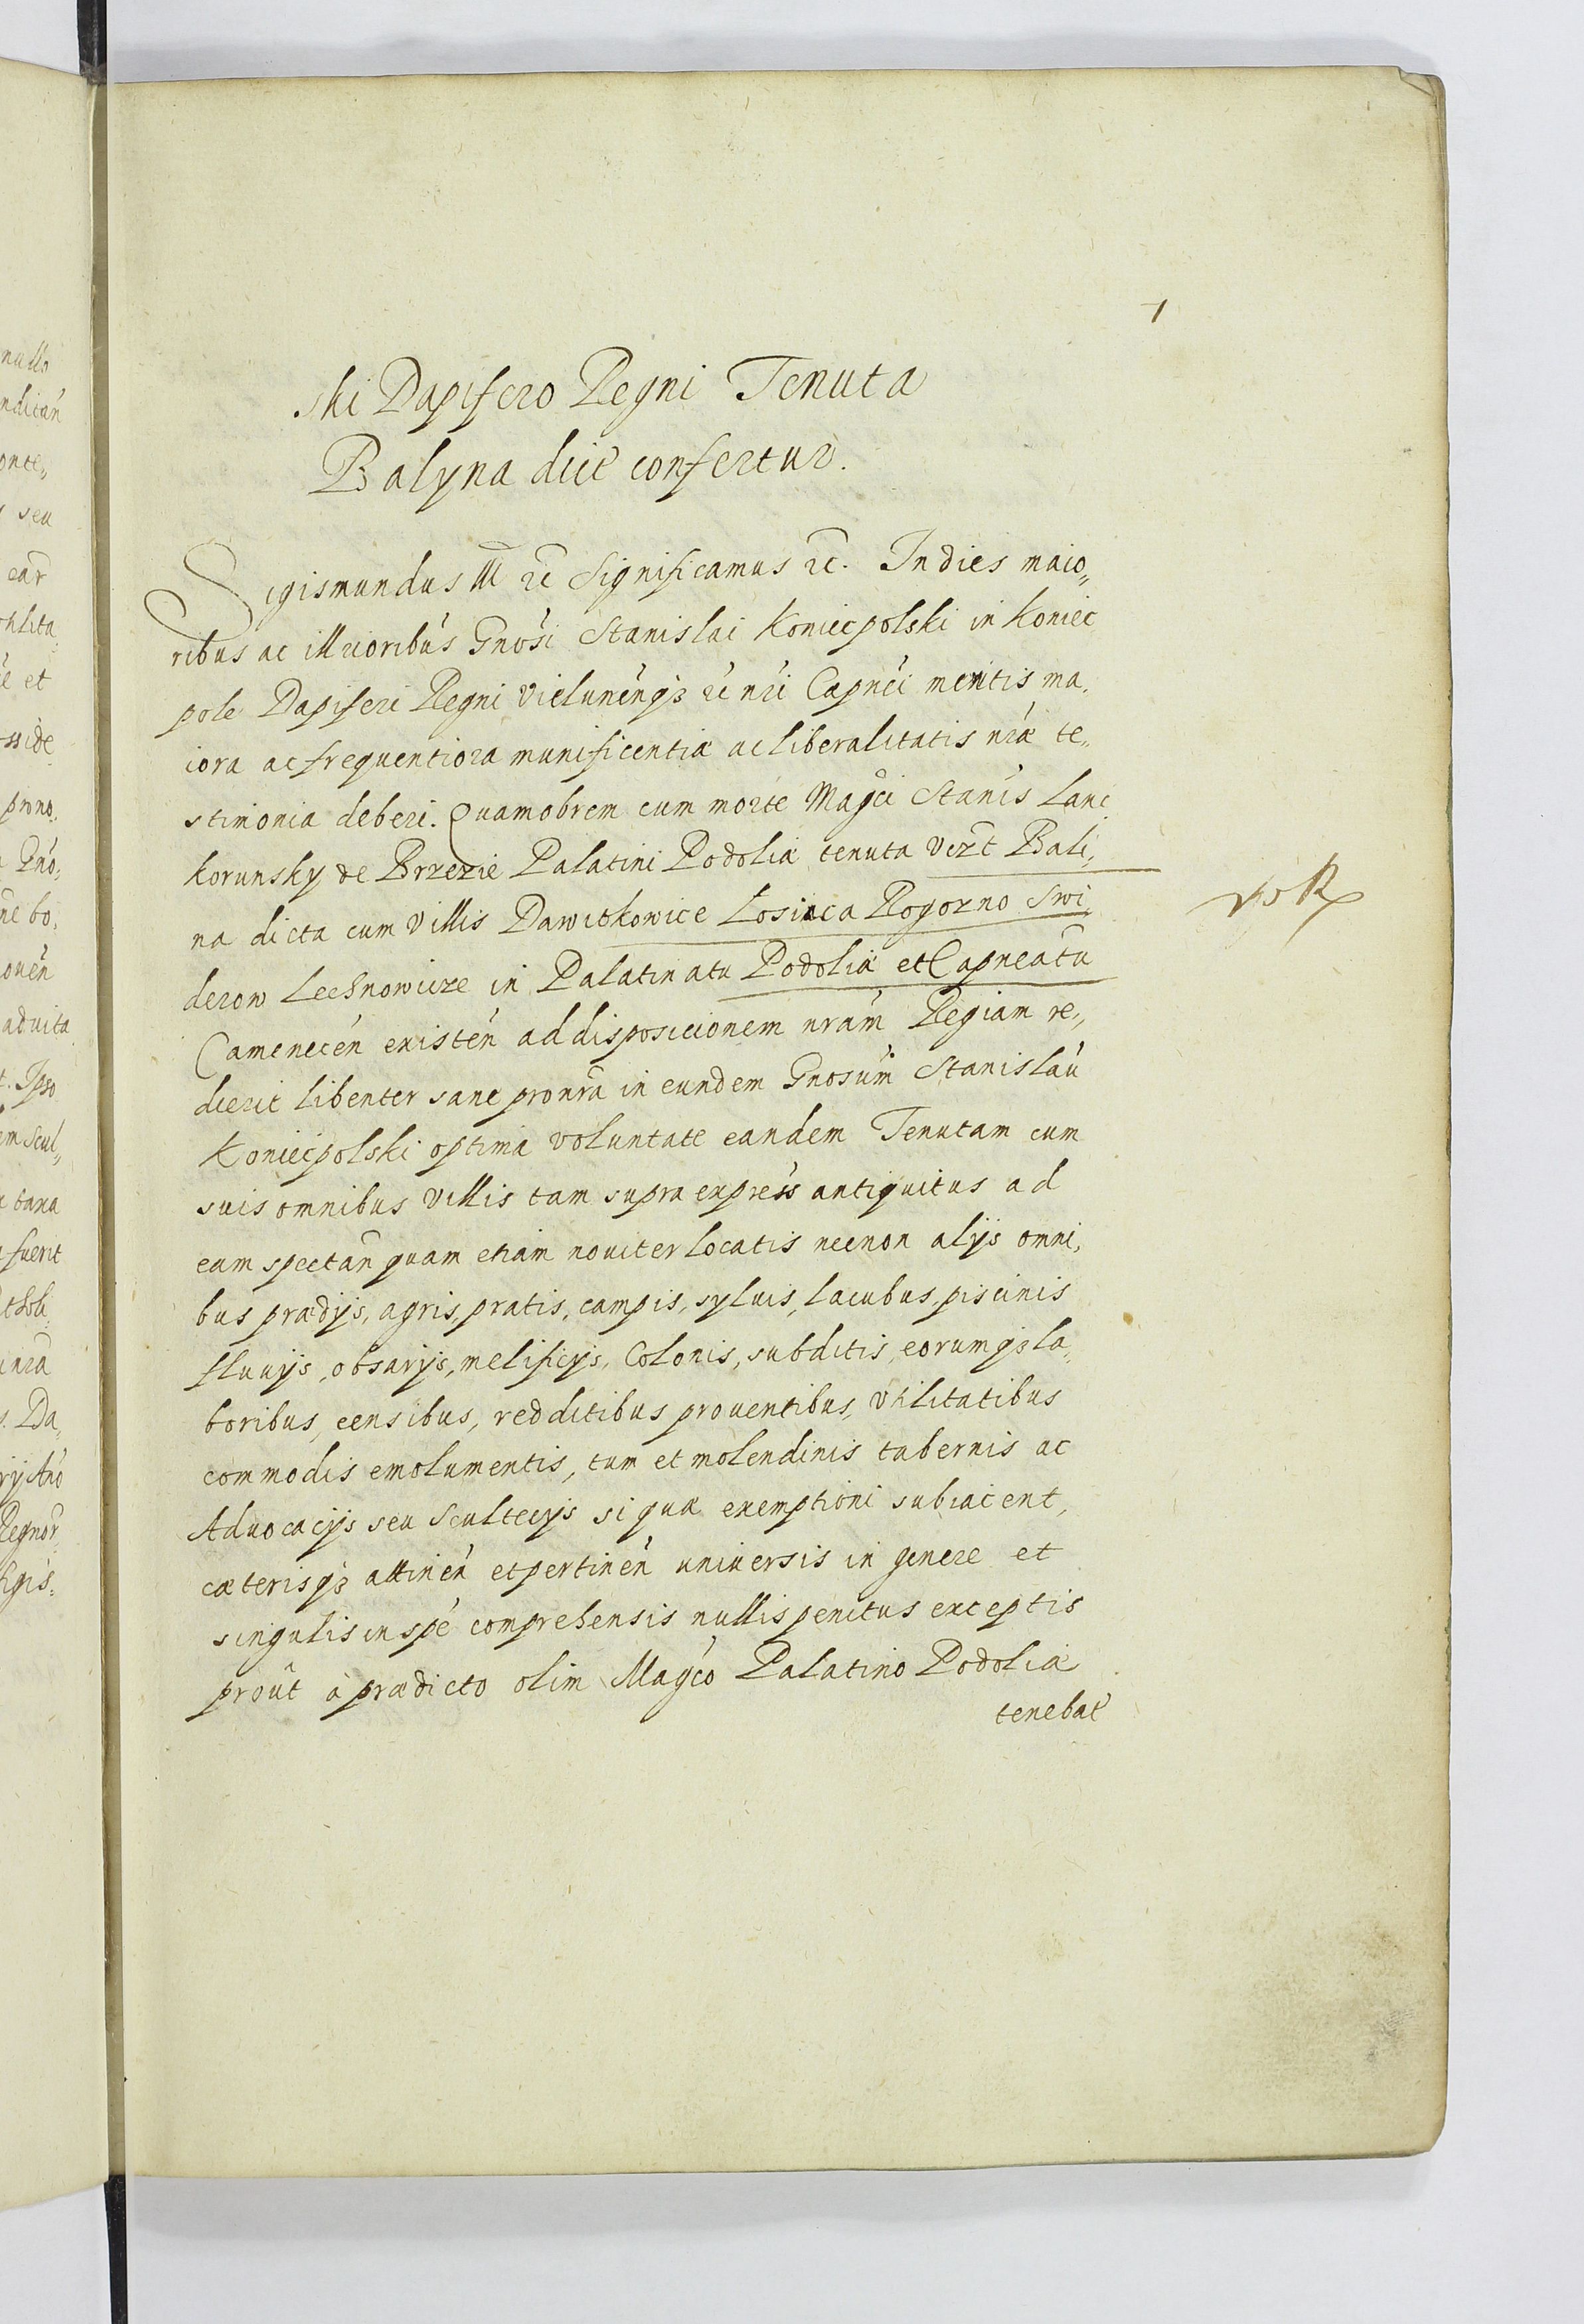 ski Dapifero Regni Tenuta
Balyna dict confertur.
Sigismundus III etc Significamus etc. In dies maio„
ribus ac illrioribus Gnosi Stanislai Koniecpolski in Koniec
pole Dapiferi Regni Vielunenqz etc nri Capnei meritis ma,
iora ac frequentiora munificentiæ ac liberalitatis nræ te„
stimonia deberi. Quamobrem cum morte Magci Stanis Lanc
korunsky de Brzezie Palatini Podoliæ tenuta Bali,
na dicta cum Villis Dawidkowice Łosiaca Rogozno Swi
derow Lechnowicze in Palatinatu Podoliæ et Capneatu
Camenecen existen ad disposicionem nram Regiam re„
dierit libenter sane pro nra in eundem Gnosum Stanislau
Koniecpolski optima voluntate eandem Tenutam cum
suis omnibus Villis tam supra express antiquitus ad
eam spectan quam etiam nouiter locatis necnon alijs omni,
bus prædijs, agris, pratis, campis, syluis, lacubus, piscinis
fluuijs, obsarijs, melificijs, Colonis, subditis, eorumqz la„
boribus, censibus, redditibus prouentibus, Vtilitatibus
commodis emolumentis, tum et molendinis tabernis ac
Aduocacijs seu Scultecijs si quæ exemptioni subiacent,
cæterisqz attinen et pertinen universis in genere et
singulis in spe comprehensis nullis penitus exceptis
prout à prædicto olim Magco Palatino Podoliæ
tenebat